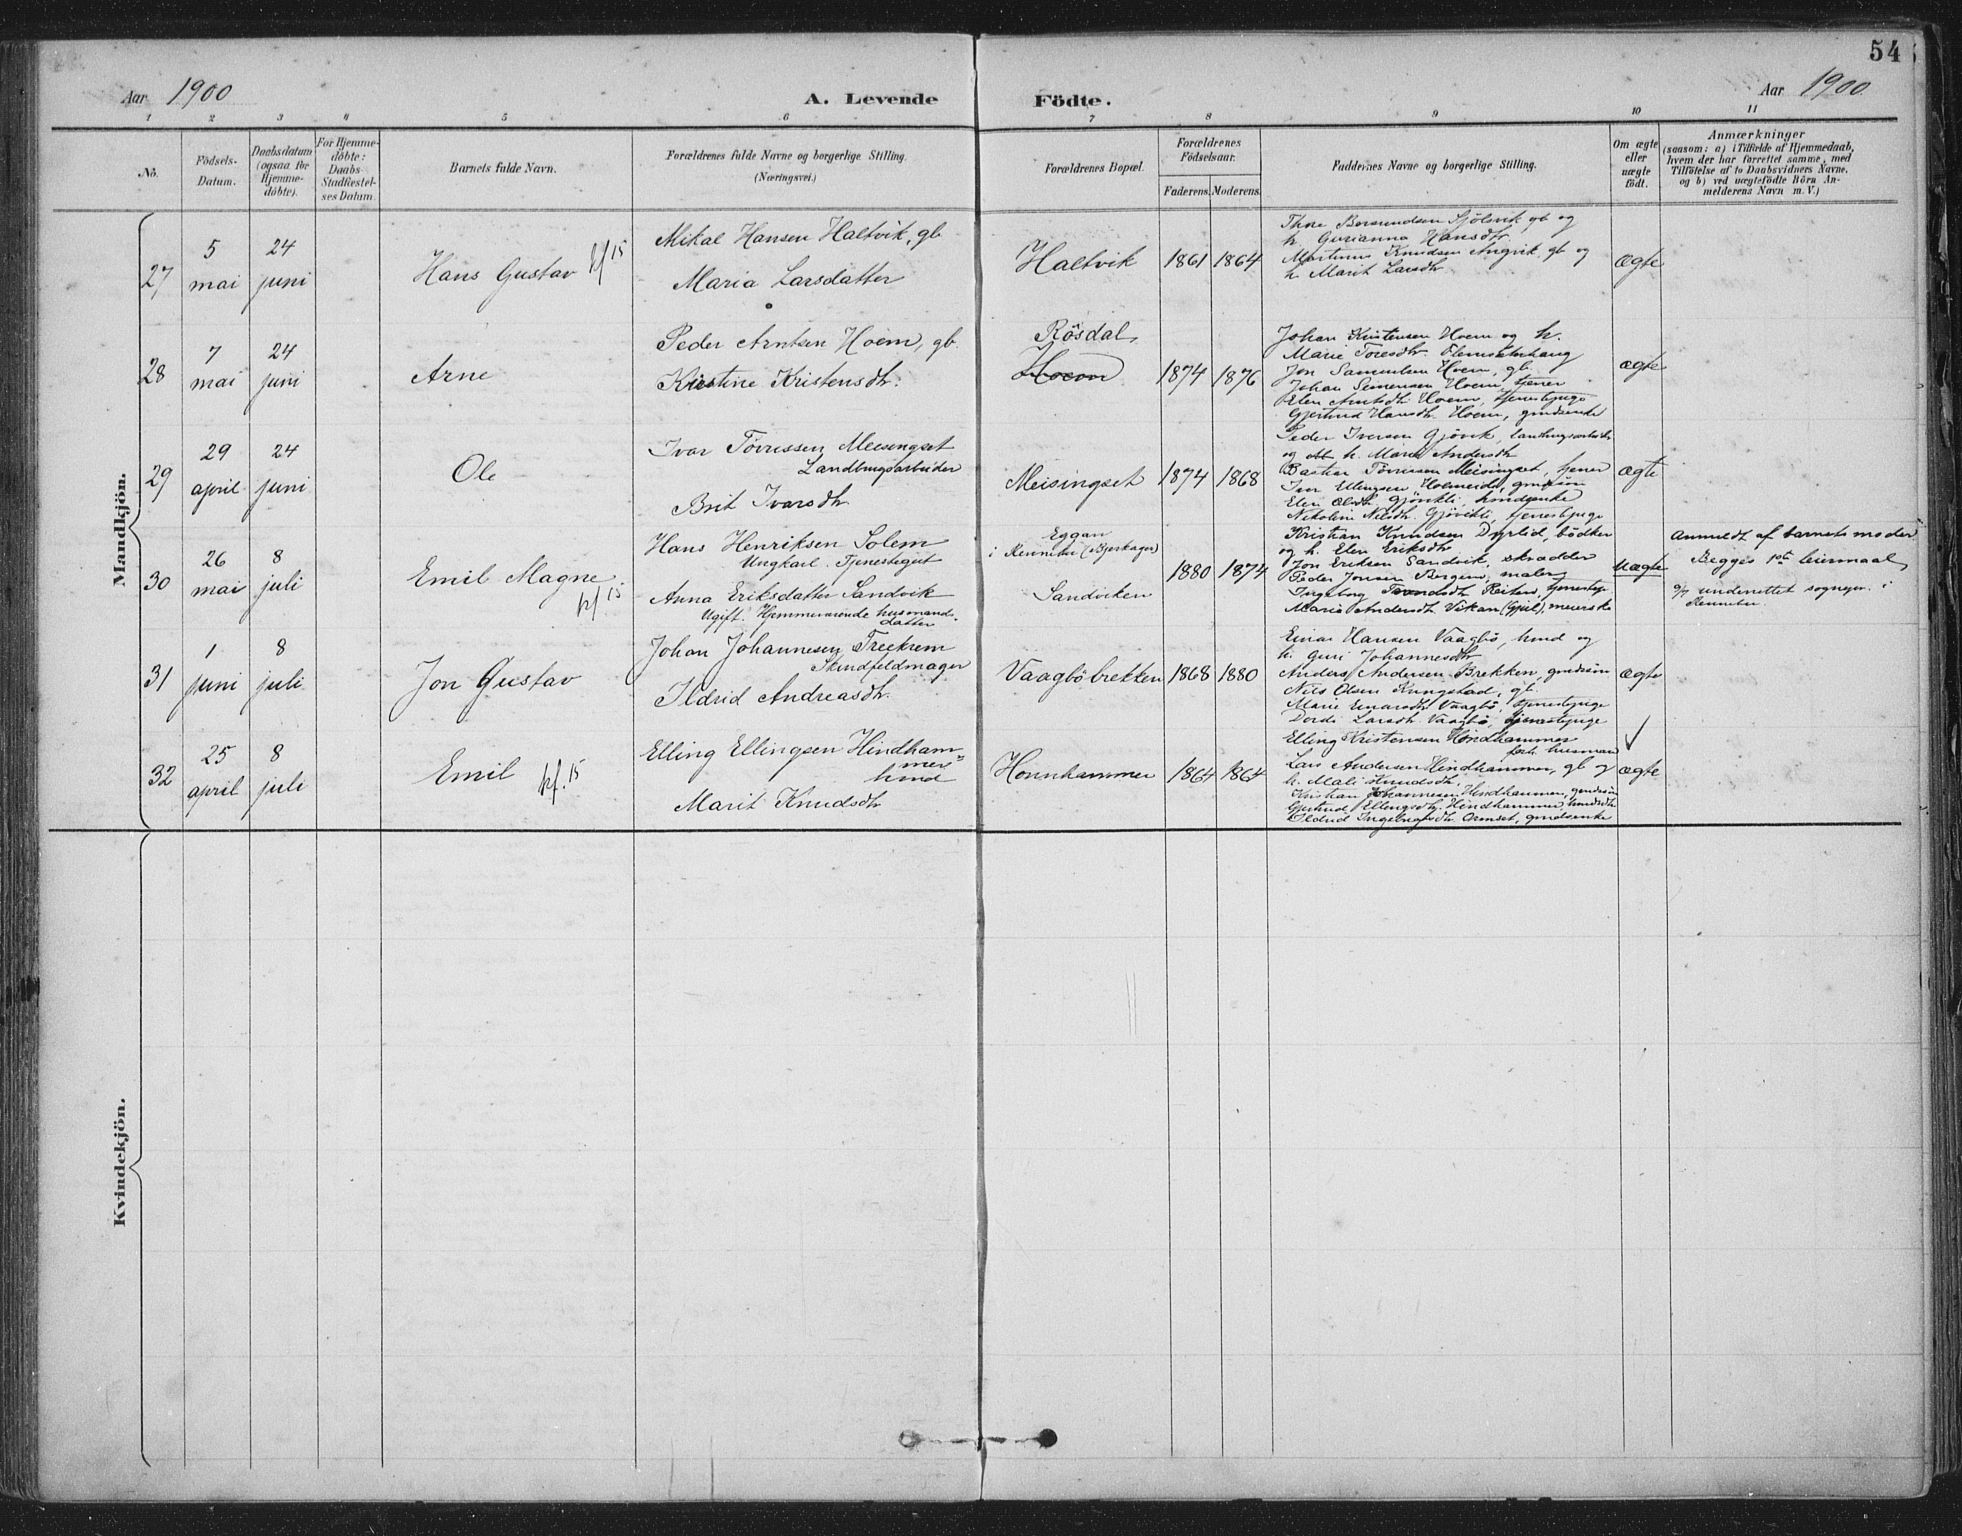 54
Aar 1900
A. Levende Födte.
Aar 1900
1 2 3 4 5 6 7 8 9 10 11
No.
Födsels-
Datum.
Daabsdatum
(ogsaa for
Hjemme-
döbte).
For Hjemme-
döbte:
Daabs-
Stadfæstel-
ses Datum.
Barnets fulde Navn.
Forældrenes fulde Navne og borgerlige Stilling.
(Næringsvei.)
Forældrenes Bopæl.
Forældrenes
Födselsaar.
Faderens. Moderens.
Faddernes Navne og borgerlige Stilling.
Om ægte
eller
uægte
födt.
Anmærkninger
(saasom: a) i Tilfælde af Hjemmedaab,
hvem der har forrettet samme, med
Tilföielse af to Daabsvidners Navne,
og b) ved uægtefödte Börn An-
melderens Navn m. V.)
Mandkjön.
27
5
mai
24
juni
Hans Gustav
Mikal Hansen Haltvik, gb
Maria Larsdatter
Haltvik
1861 1864
Sjölsvik gb og
h. Gurianna Hansdtr
Martinus Knudsen Angvik gb og
h. Marit Larsdtr
ægte
28
7
mai
24
juni
Arne
Peder Arntsen Hoem, gb.
Kirstine Kristensdtr.
Rösdal
Hoem
1874 1876
Johan Kristensen Hoem og h.
Marie Toresdtr
Jon Samuelsen Hoem, gb.
Johan Simensen Hoem, tjener
Elen Arntsdtr Hoem, tjenestepige
Gjertrud Hansdtr. Hoem, gmdsenke
ægte
29
29
april
24
juni
Ole
Ivar Törrissen Meisingset
Landbrugsarbeider
Brit Ivarsdtr
Meisingset
1874 1868
Peder Iversen Gjövik, landbrugsarbeider
og h. Marit Andersdtr
Bastian Törrissen Meisingset, tjener
Iver Ellingsen Holmeide, gmdssön
Elen Olsdtr Gjövikli, husmdsenke
Nikoline Nilsdtr Gjövikli, tjenestepige
ægte
30
26
mai
8
juli
Emil Magne
Hans Henriksen Solem
Ungkarl. Tjenestegut
Anna Eriksdatter Sandvik
Ugift. Hjemmeværende husmand-
datter
Eggan
i Rennebu (Bjerkager)
Sandviken
1880 1874
Kristian Knudsen Dyrlid, bödker
og h. Elen Eriksdtr
Jon Eriksen Sandvik, skrædder
Peder Jonsen Bergem, maler
Ingeborg Reiten, tjenestepige
Maria Andersdtr Vikan (Gjül), meierske
uægte
Anmeldt af barnets moder
Begges 1ste leiermaal
9/7 underrettet sognepr. i
Rennebu.
31
1
juni
8
juli
Jon Gustav
Johan Johannesen Treekrem
Skindfeldmager
Ildrid Andreasdtr.
Vaagböbrekken
1868 1880
Einar Hansen Vaagbö, husmd og
h. Guri Johannesdtr
Anders Andersen Brekken, gmdssön
Nils Olsen Rungstad, gb.
Marie Einarsdtr Vaagbö, tjenestepige
Dordi Larsdtr Vaagbö, tjenestepige
ægte
32
25
april
8
juli
Emil
Elling Ellingsen Hindham-
mer
husmd
Marit Knudsdtr
Honnhammer
1864 1864
Elling Kristensen Hindhammer
forh. husmand
Lars Andersen Hindhammer, gb og
h. Mali Knudsdtr
Kristian Johannesen Hindhammer, gmdssön
Gjertrud Ellingsdtr. Hindhammer, husmdsdtr.
Ildrid Ingebrigtsdtr. Ormset, gmdsenke
ægte
Kvindekjön.